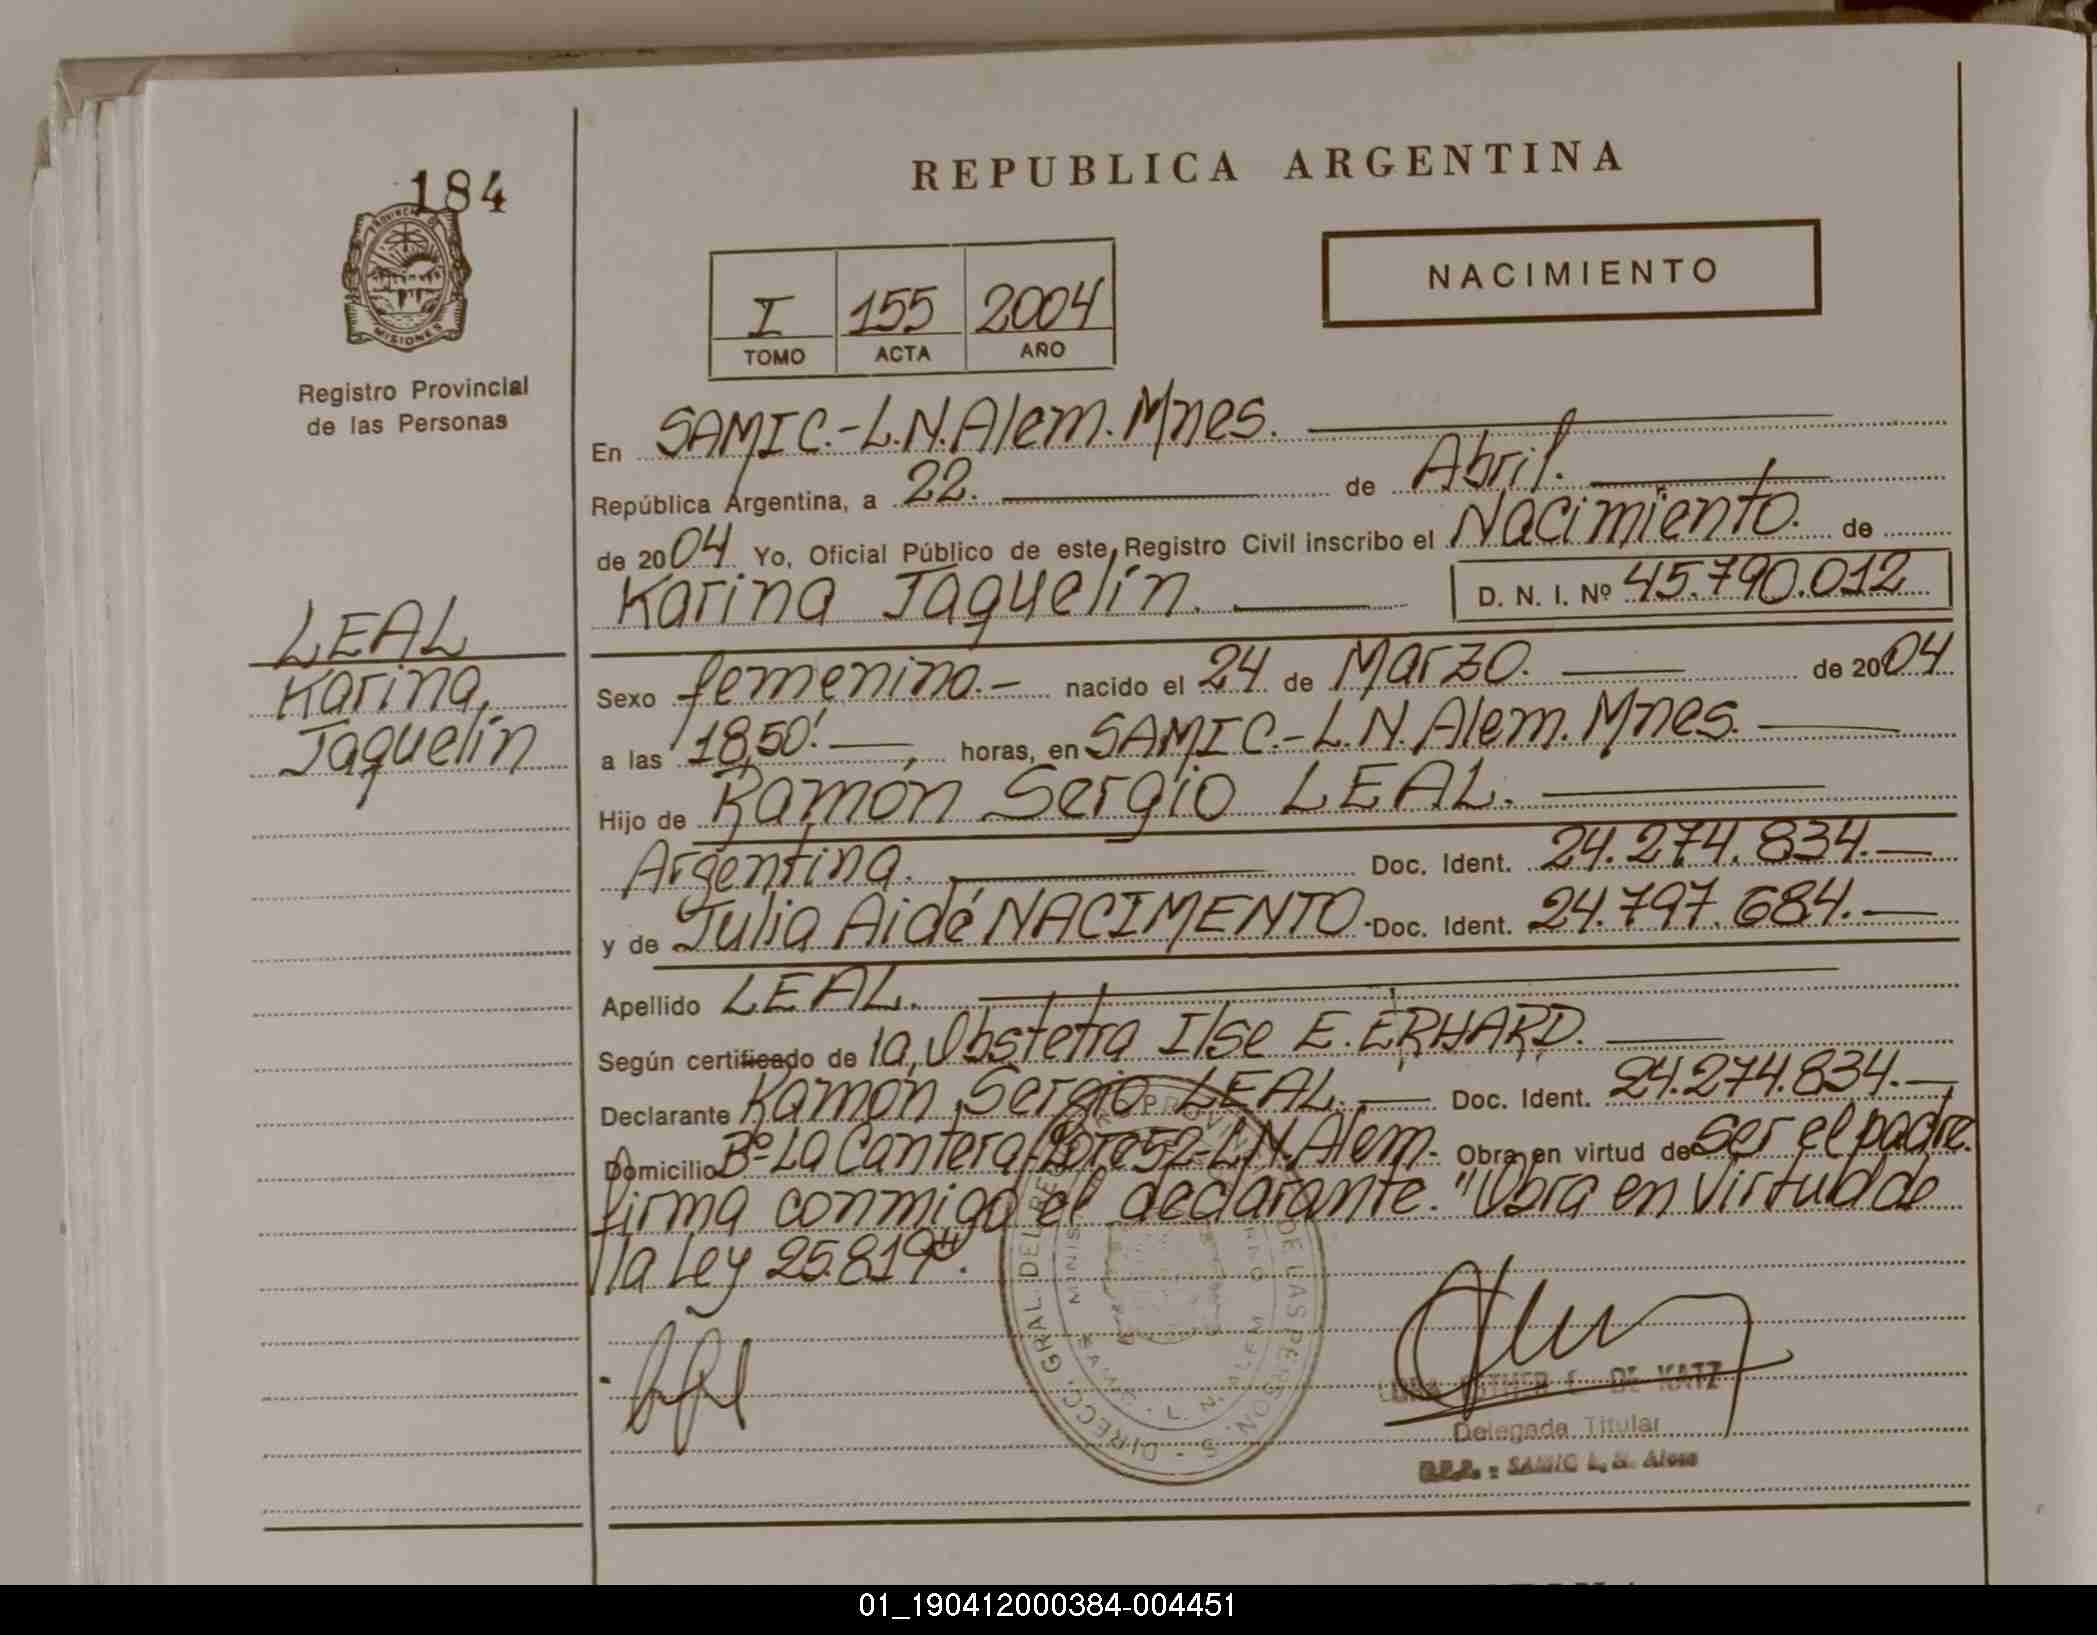 184
PROVINCIA DE
MISIONES
Registro Provincial
de las Personas
LEAL
Karina
Jaquelín
REPUBLICA ARGENTINA
NACIMIENTO
I 155 2004
TOMO ACTA AÑO
En SAMIC.-L.N.Alem.Mnes.
República Argentina, a 22. de Abril.
de 2004 Yo, Oficial Público de este Registro Civil inscribo el Nacimiento. de
Karina Jaquelín. D. N. I. Nº 45.790.012
Sexo femenino.- nacido el 24 de Marzo. de 2004
a las 18,50'. horas, en SAMIC.-L.N.Alem.Mnes.
Hijo de Ramón Sergio LEAL.
Argentina. Doc. Ident. 24.274.834.-
y de Julia Aidé NACIMENTO.- Doc. Ident. 24.797.684.-
Apellido LEAL.
Según certificado de la Obstetra Ilse E. ERHARD.
Declarante Ramón Sergio LEAL. Doc. Ident. 24.274.834.-
Domicilio Bº La Cantera-Lote 52-L.N.Alem.- Obra en virtud de ser el padre.
firma conmigo el declarante. "Obra en virtud de
la Ley 25.819".
DIRECC. GRAL. DEL REG. PROVINCIAL DE LAS PERSONAS
SAMIC - L. N. ALEM
ESTHER E. DE KATZ
Delegada Titular
SAMIC L. N. Alem
01_190412000384-004451